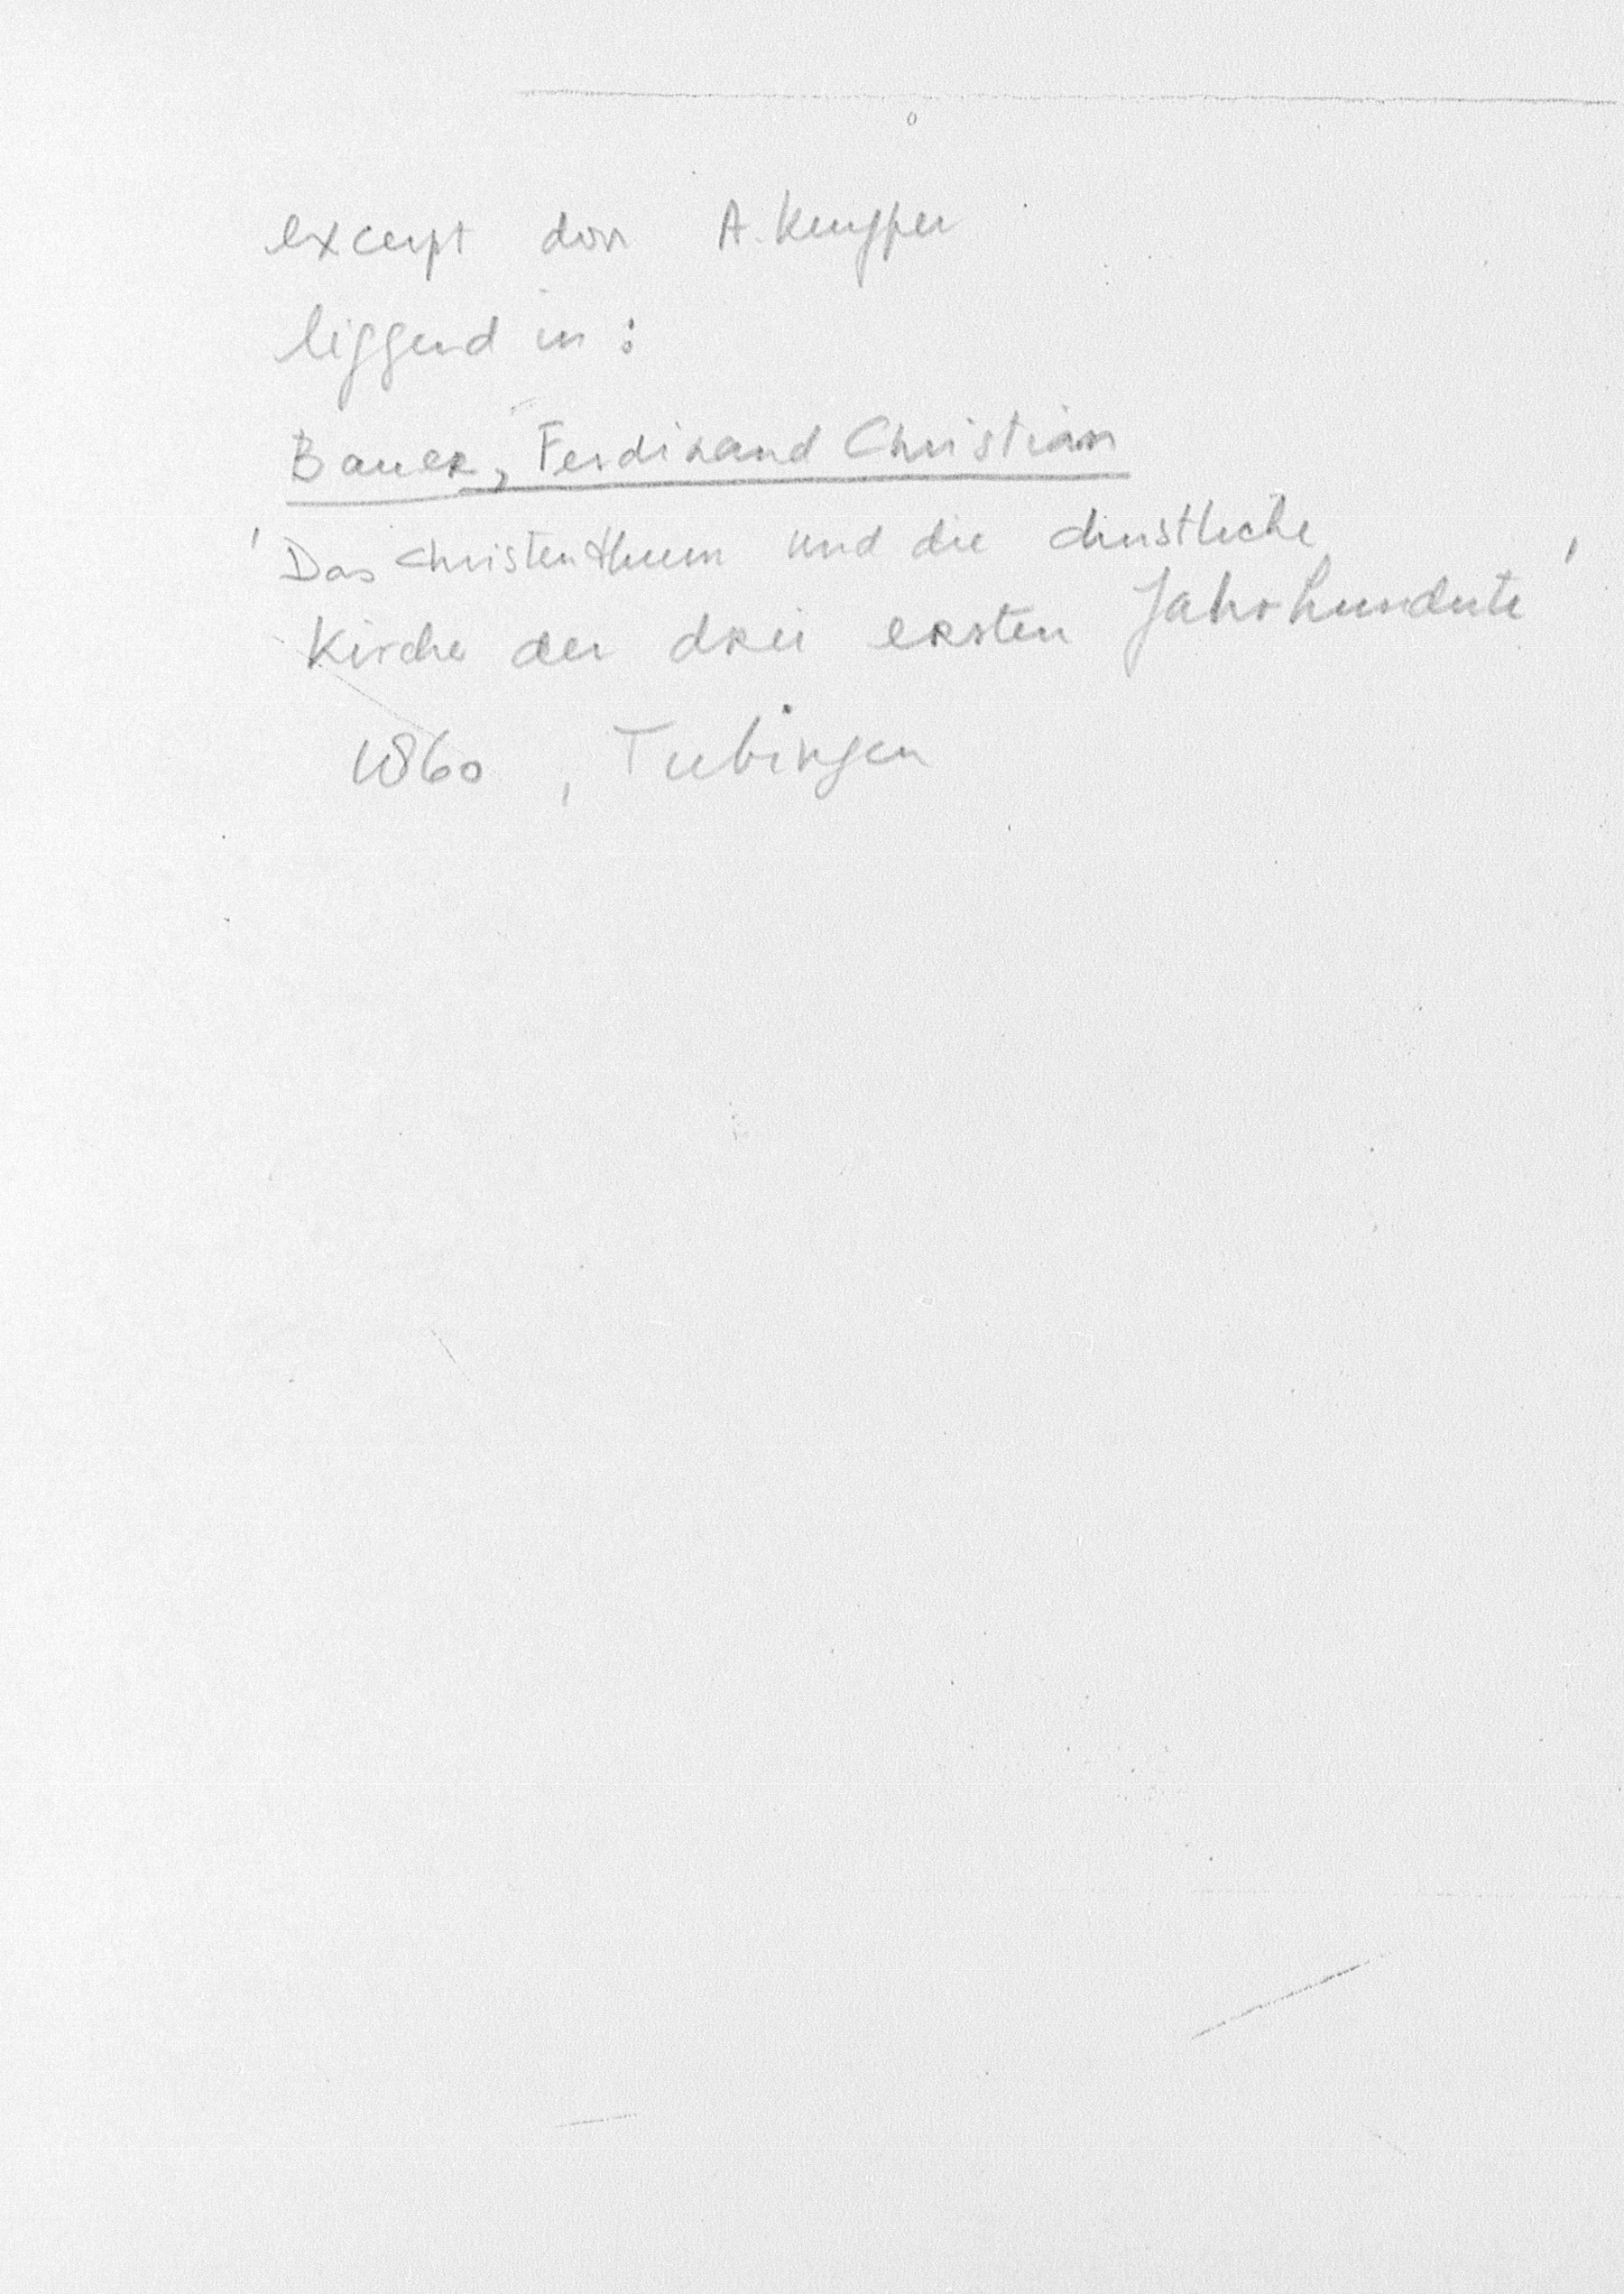 excerpt door A. Kuyper
liggend in:
Bauer, Ferdinand Christian
'Das Christenthum und die christliche
Kirche der drei ersten Jahrhunderte'
1860, Tubingen